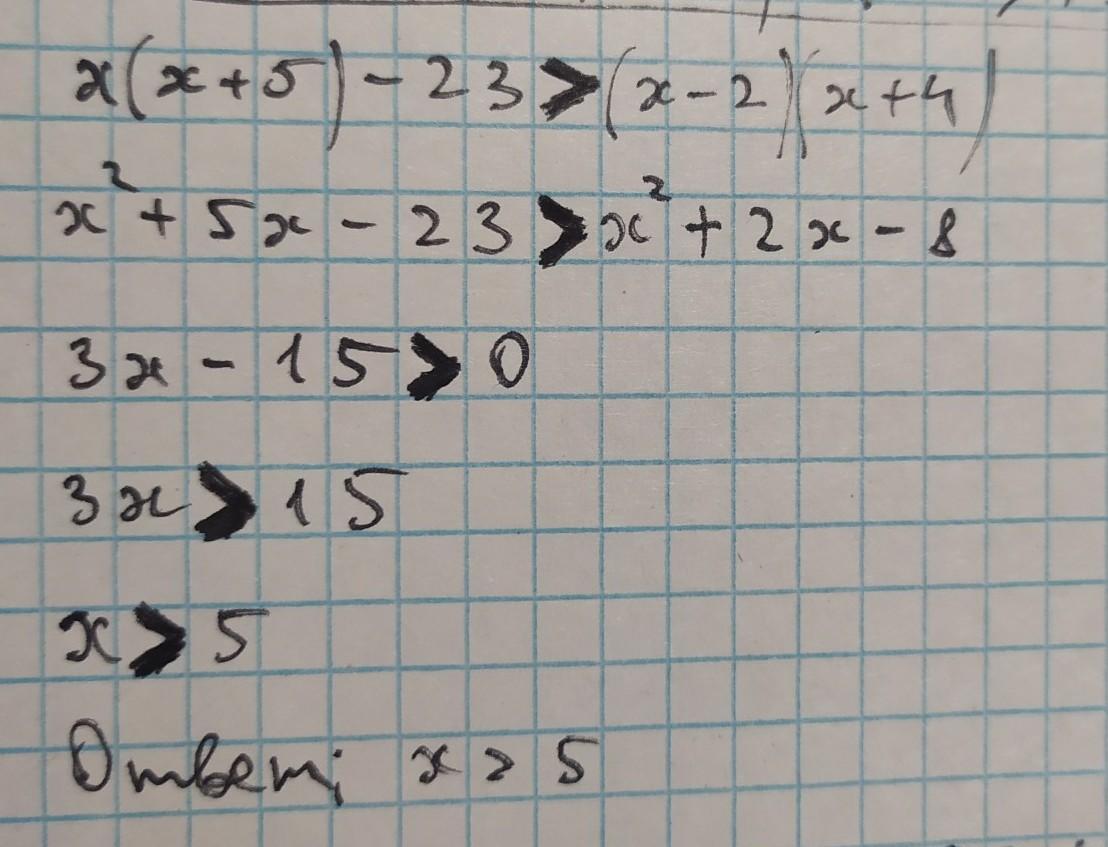 x(x+5)-23>(x-2)(x+4)
x²+5x-23>x²+2x-8
3x-15>0
3x>15
x>5
Ответ: x>5